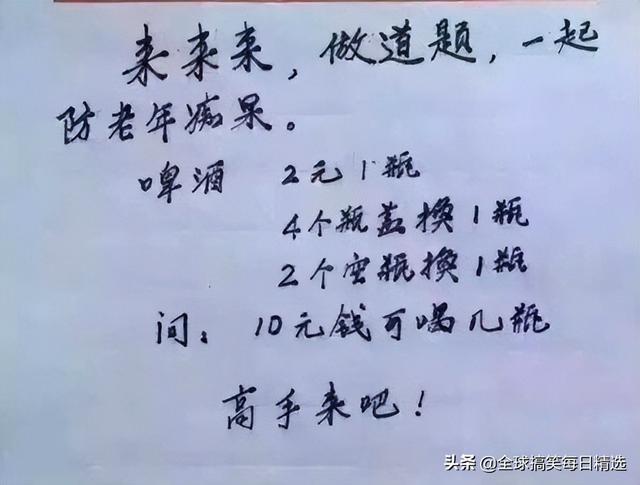 来来来，做道题，一起
防老年痴呆。
啤酒 2元1瓶
4个瓶盖换1瓶
2个空瓶换1瓶
问：10元钱可喝几瓶
高手来吧！
头条 @全球搞笑每日精选